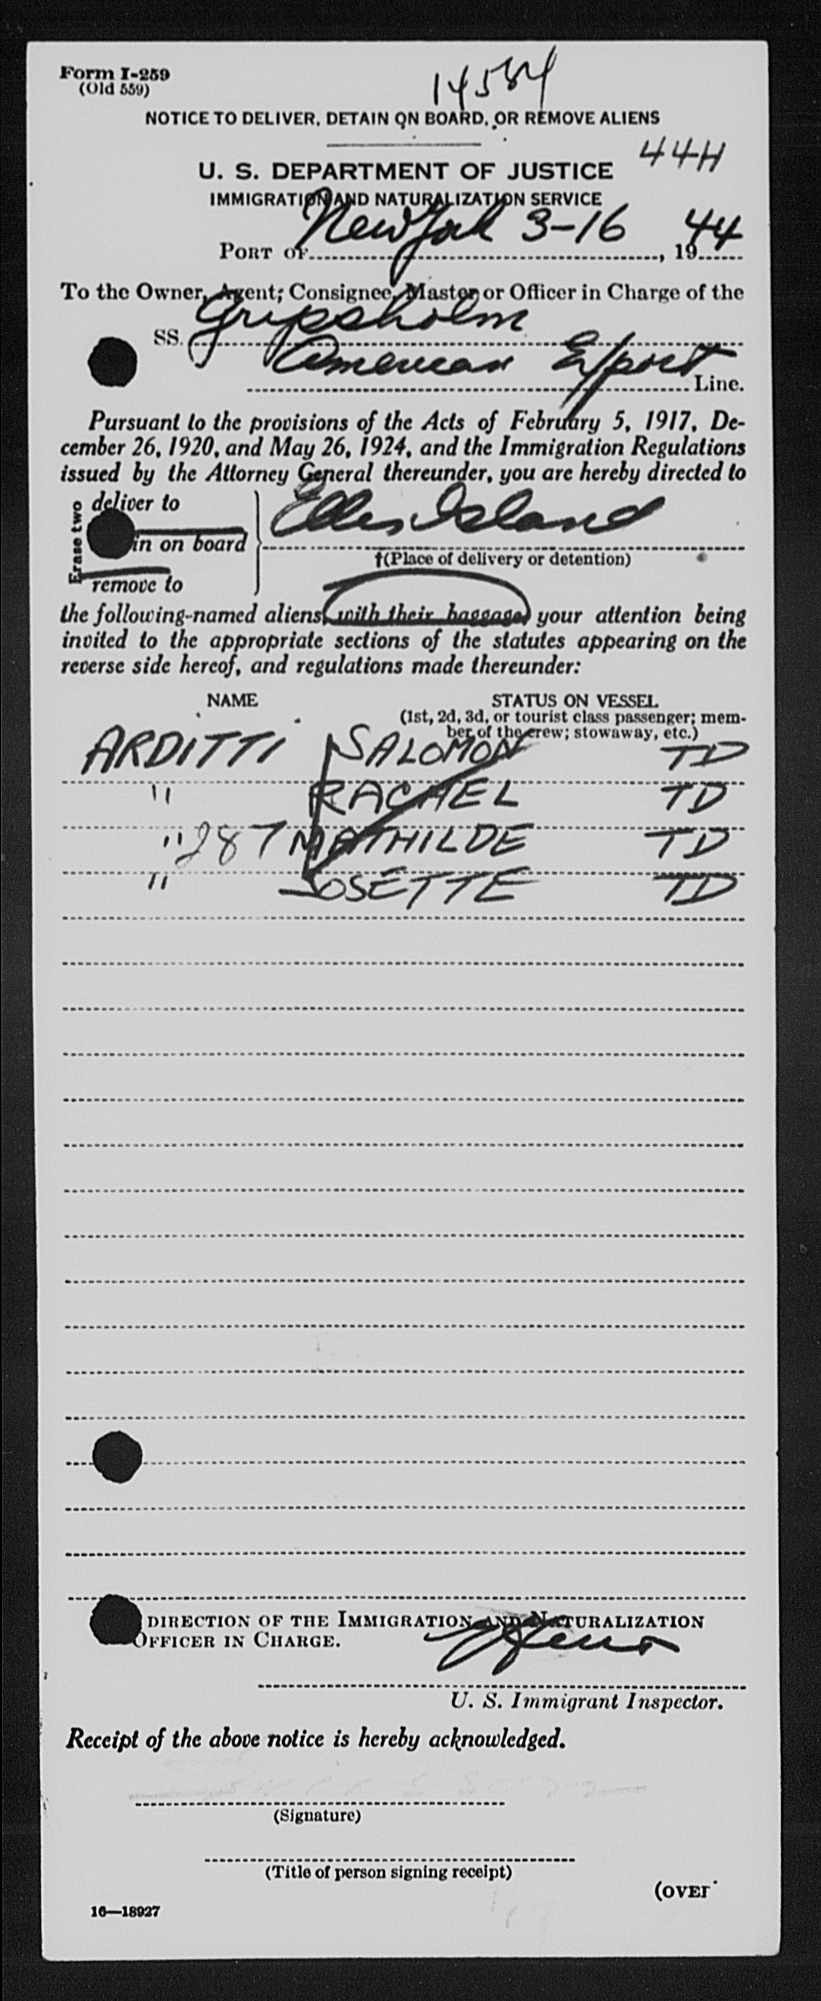 Form I-259
(Old 559)
14584
NOTICE TO DELIVER, DETAIN ON BOARD, OR REMOVE ALIENS
44H
U. S. DEPARTMENT OF JUSTICE
IMMIGRATION AND NATURALIZATION SERVICE
PORT OF New York 3-16, 1944
To the Owner, Agent, Consignee, Master or Officer in Charge of the
SS. Gripsholm
American Export Line.
Pursuant to the provisions of the Acts of February 5, 1917, De-
cember 26, 1920, and May 26, 1924, and the Immigration Regulations
issued by the Attorney General thereunder, you are hereby directed to
Erase two
deliver to
in on board
remove to
Ellis Island
†(Place of delivery or detention)
the following-named aliens, with their baggage, your attention being
invited to the appropriate sections of the statutes appearing on the
reverse side hereof, and regulations made thereunder:
NAME STATUS ON VESSEL
(1st, 2d, 3d, or tourist class passenger; mem-
ber of the crew; stowaway, etc.)
ARDITTI SALOMON TD
" RACHEL TD
" 287 MATHILDE TD
" JOSETTE TD
DIRECTION OF THE IMMIGRATION AND NATURALIZATION
OFFICER IN CHARGE.
U. S. Immigrant Inspector.
Receipt of the above notice is hereby acknowledged.
(Signature)
(Title of person signing receipt)
(OVER
16—18927